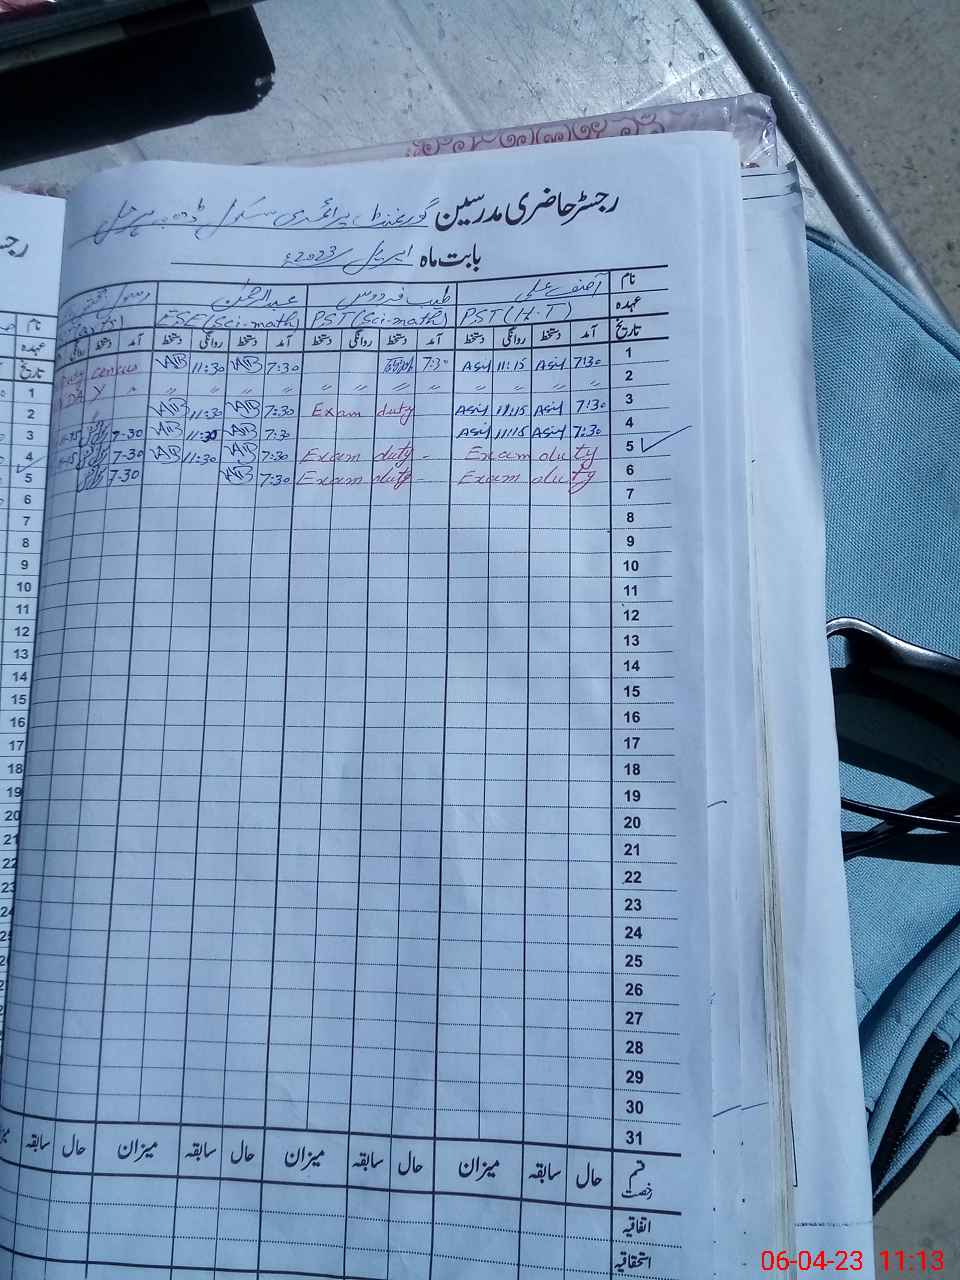 رجسٹر حاضری مدرسین گورنمنٹ پرائمری سکول
بابت ماہ اپریل 2023ء
نام آصف علی طیب فردوس عبدالرحمٰن رسول
عہدہ PST(H.T) PST(Sci-math) ESE(Sci-math)
تاریخ آمد دستخط روانگی دستخط آمد دستخط روانگی دستخط آمد دستخط روانگی دستخط آمد دستخط روانگی
1 7:30 Asif 11:15 Asif 7:30 7:30 AB 11:30 AB census
2 " " " " " " " " " " " " DAY "
3 7:30 Asif 11:15 Asif Exam duty 7:30 AB 11:30 AB
4 7:30 Asif 11:15 Asif 7:30 AB 11:30 AB 7-30
5 Exam duty Exam duty - 7:30 AB 11:30 AB 7-30
6 Exam duty Exam duty - 7:30 AB 7-30
7
8
9
10
11
12
13
14
15
16
17
18
19
20
21
22
23
24
25
26
27
28
29
30
31
قسم رخصت حال سابقہ میزان حال سابقہ میزان حال سابقہ میزان حال سابقہ
اتفاقیہ
استحقاقیہ
نام
عہدہ
تاریخ
1
2
3
4
5
6
7
8
9
10
11
12
13
14
15
16
17
18
19
20
21
22
23
06-04-23 11:13